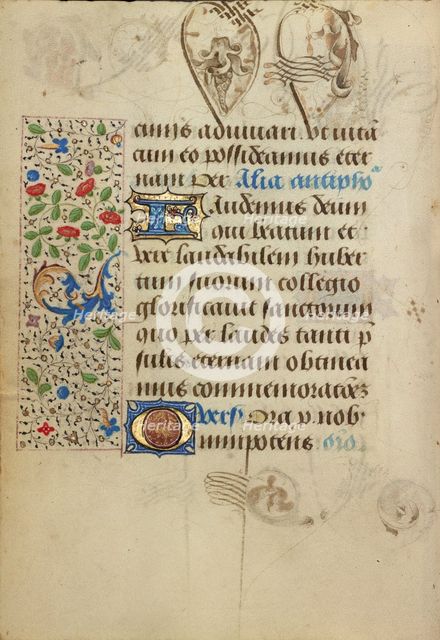 cuius adiuuari. vt uitā
cum eo possideamus eter
nam Per Alia antiphoᵃ
Laudemus deum
qui beatum et
vere laudabilem huber
tum suorum collegio
glorificauit sanctorum
quo per laudes tanti p
sulis eternam obtinea
mus commemoratōēʒ
Vers Ora p nob
Omnipotens oro